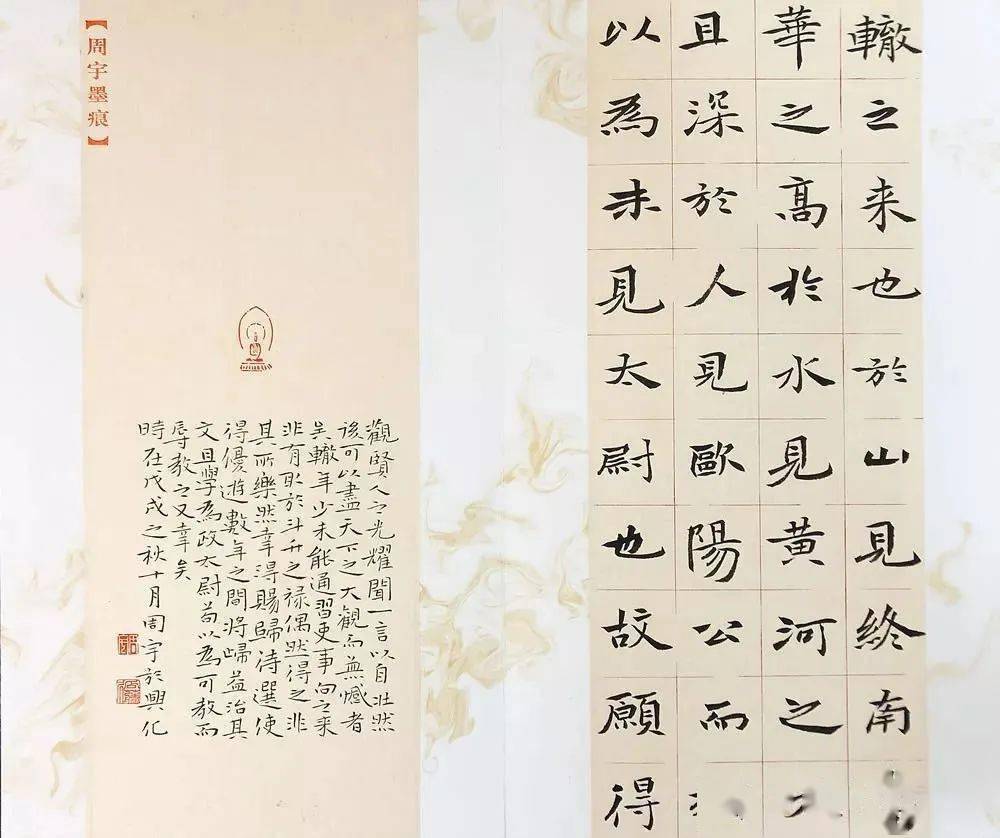 轍之来也於山見終南
華之高於水見黄河之
且深於人見歐陽公而
以為未見太尉也故願得
觀賢人之光耀聞一言以自壯然
後可以盡天下之大觀而無憾者
矣轍年少未能通習吏事向之来
非有取於斗升之禄偶然得之非
其所樂然幸得賜歸待選使
得優遊數年之間将歸益治其
文且學為政太尉苟以為可教而
辱教之又幸矣
時在戊戌之秋十月周宇於興化
【周宇墨痕】